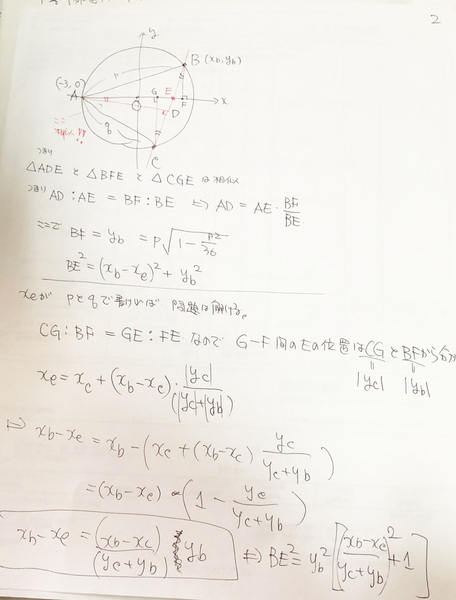 2
y
B (xb, yb)
(-3, 0)
A
P
O
G
E
F
x
D
q
C
ここ
つまり
△ADE と △BFE と △CGE は相似
つまり AD : AE = BF : BE ⇔ AD = AE · BF/BE
ここで BF = yb = P√(1 - P²/36)
BE² = (xb - xe)² + yb²
xeが Pとqで書ければ 問題は解ける。
CG : BF = GE : FE なので G-F間のEの位置は CG と BF から分か
|yc| |yb|
xe = xc + (xb - xc) · |yc|/(|yc|+|yb|)
⇔ xb - xe = xb - (xc + (xb - xc) yc/(yc + yb))
= (xb - xc) (1 - yc/(yc + yb))
xb - xe = (xb - xc)/(yc + yb) yb ⇔ BE² = yb² [((xb - xc)/(yc + yb))² + 1]